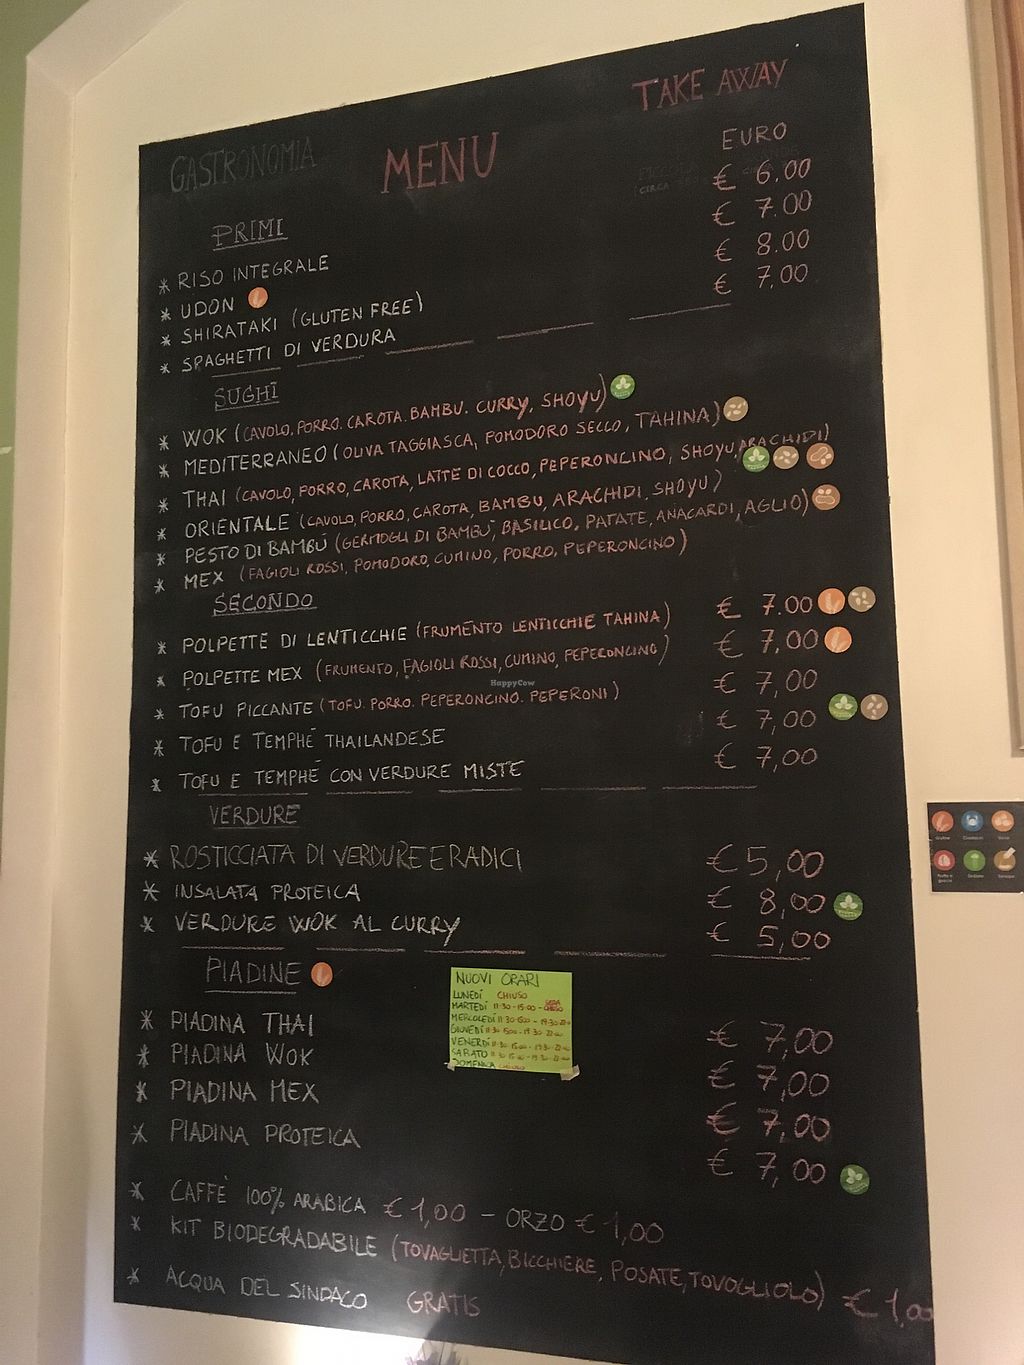 GASTRONOMIA MENU TAKE AWAY
EURO
PRIMI
* RISO INTEGRALE € 6.00
* UDON € 7.00
* SHIRATAKI (GLUTEN FREE) € 8.00
* SPAGHETTI DI VERDURA € 7,00
SUGHI
* WOK (CAVOLO, PORRO. CAROTA. BAMBU. CURRY, SHOYU)
* MEDITERRANEO (OLIVA TAGGIASCA, POMODORO SECCO, TAHINA)
* THAI (CAVOLO, PORRO, CAROTA, LATTE DI COCCO, PEPERONCINO, SHOYU, ARACHIDI)
* ORIENTALE (CAVOLO, PORRO, CAROTA, BAMBU, ARACHIDI, SHOYU)
* PESTO DI BAMBÚ (GERMOGLI DI BAMBÚ, BASILICO, PATATE, ANACARDI, AGLIO)
* MEX (FAGIOLI ROSSI, POMODORO, CUMINO, PORRO, PEPERONCINO)
SECONDO
* POLPETTE DI LENTICCHIE (FRUMENTO LENTICCHIE TAHINA) € 7.00
* POLPETTE MEX (FRUMENTO, FAGIOLI ROSSI, CUMINO, PEPERONCINO) € 7,00
* TOFU PICCANTE (TOFU. PORRO. PEPERONCINO. PEPERONI) € 7,00
* TOFU E TEMPHÉ THAILANDESE € 7,00
* TOFU E TEMPHÉ CON VERDURE MISTE € 7,00
HappyCow
VERDURE
* ROSTICCIATA DI VERDURE E RADICI € 5,00
* INSALATA PROTEICA € 8,00
* VERDURE WOK AL CURRY € 5,00
PIADINE
* PIADINA THAI € 7,00
* PIADINA WOK € 7,00
* PIADINA MEX € 7,00
* PIADINA PROTEICA € 7,00
NUOVI ORARI
LUNEDÍ CHIUSO
MARTEDÍ 11:30-15:00 - SERA CHIUSO
MERCOLEDÍ 11:30-15:00 - 19:30
GIOVEDÍ 11:30 15:00 - 19:30 22:00
VENERDÍ 11:30 15:00 - 19:30 22:00
SABATO 11:30 15:00 - 19:30 22:00
DOMENICA CHIUSO
* CAFFÈ 100% ARABICA € 1,00 - ORZO € 1,00
* KIT BIODEGRADABILE (TOVAGLIETTA, BICCHIERE, POSATE, TOVOGLIOLO) € 1,00
* ACQUA DEL SINDACO GRATIS